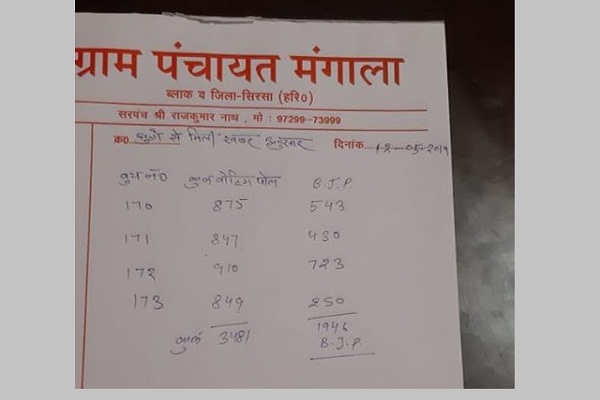 ग्राम पंचायत मंगाला
ब्लाक व जिला-सिरसा (हरि०)
सरपंच श्री राजकुमार नाथ, मो : 97299-73999
क्र०. सूत्रों से मिली खबर अनुसार दिनांक 12-05-2019
बुथ नं० कुल वोटिंग पोल B.J.P.
170 875 543
171 847 430
172 910 723
173 849 250
कुल 3481 1946
B.J.P.